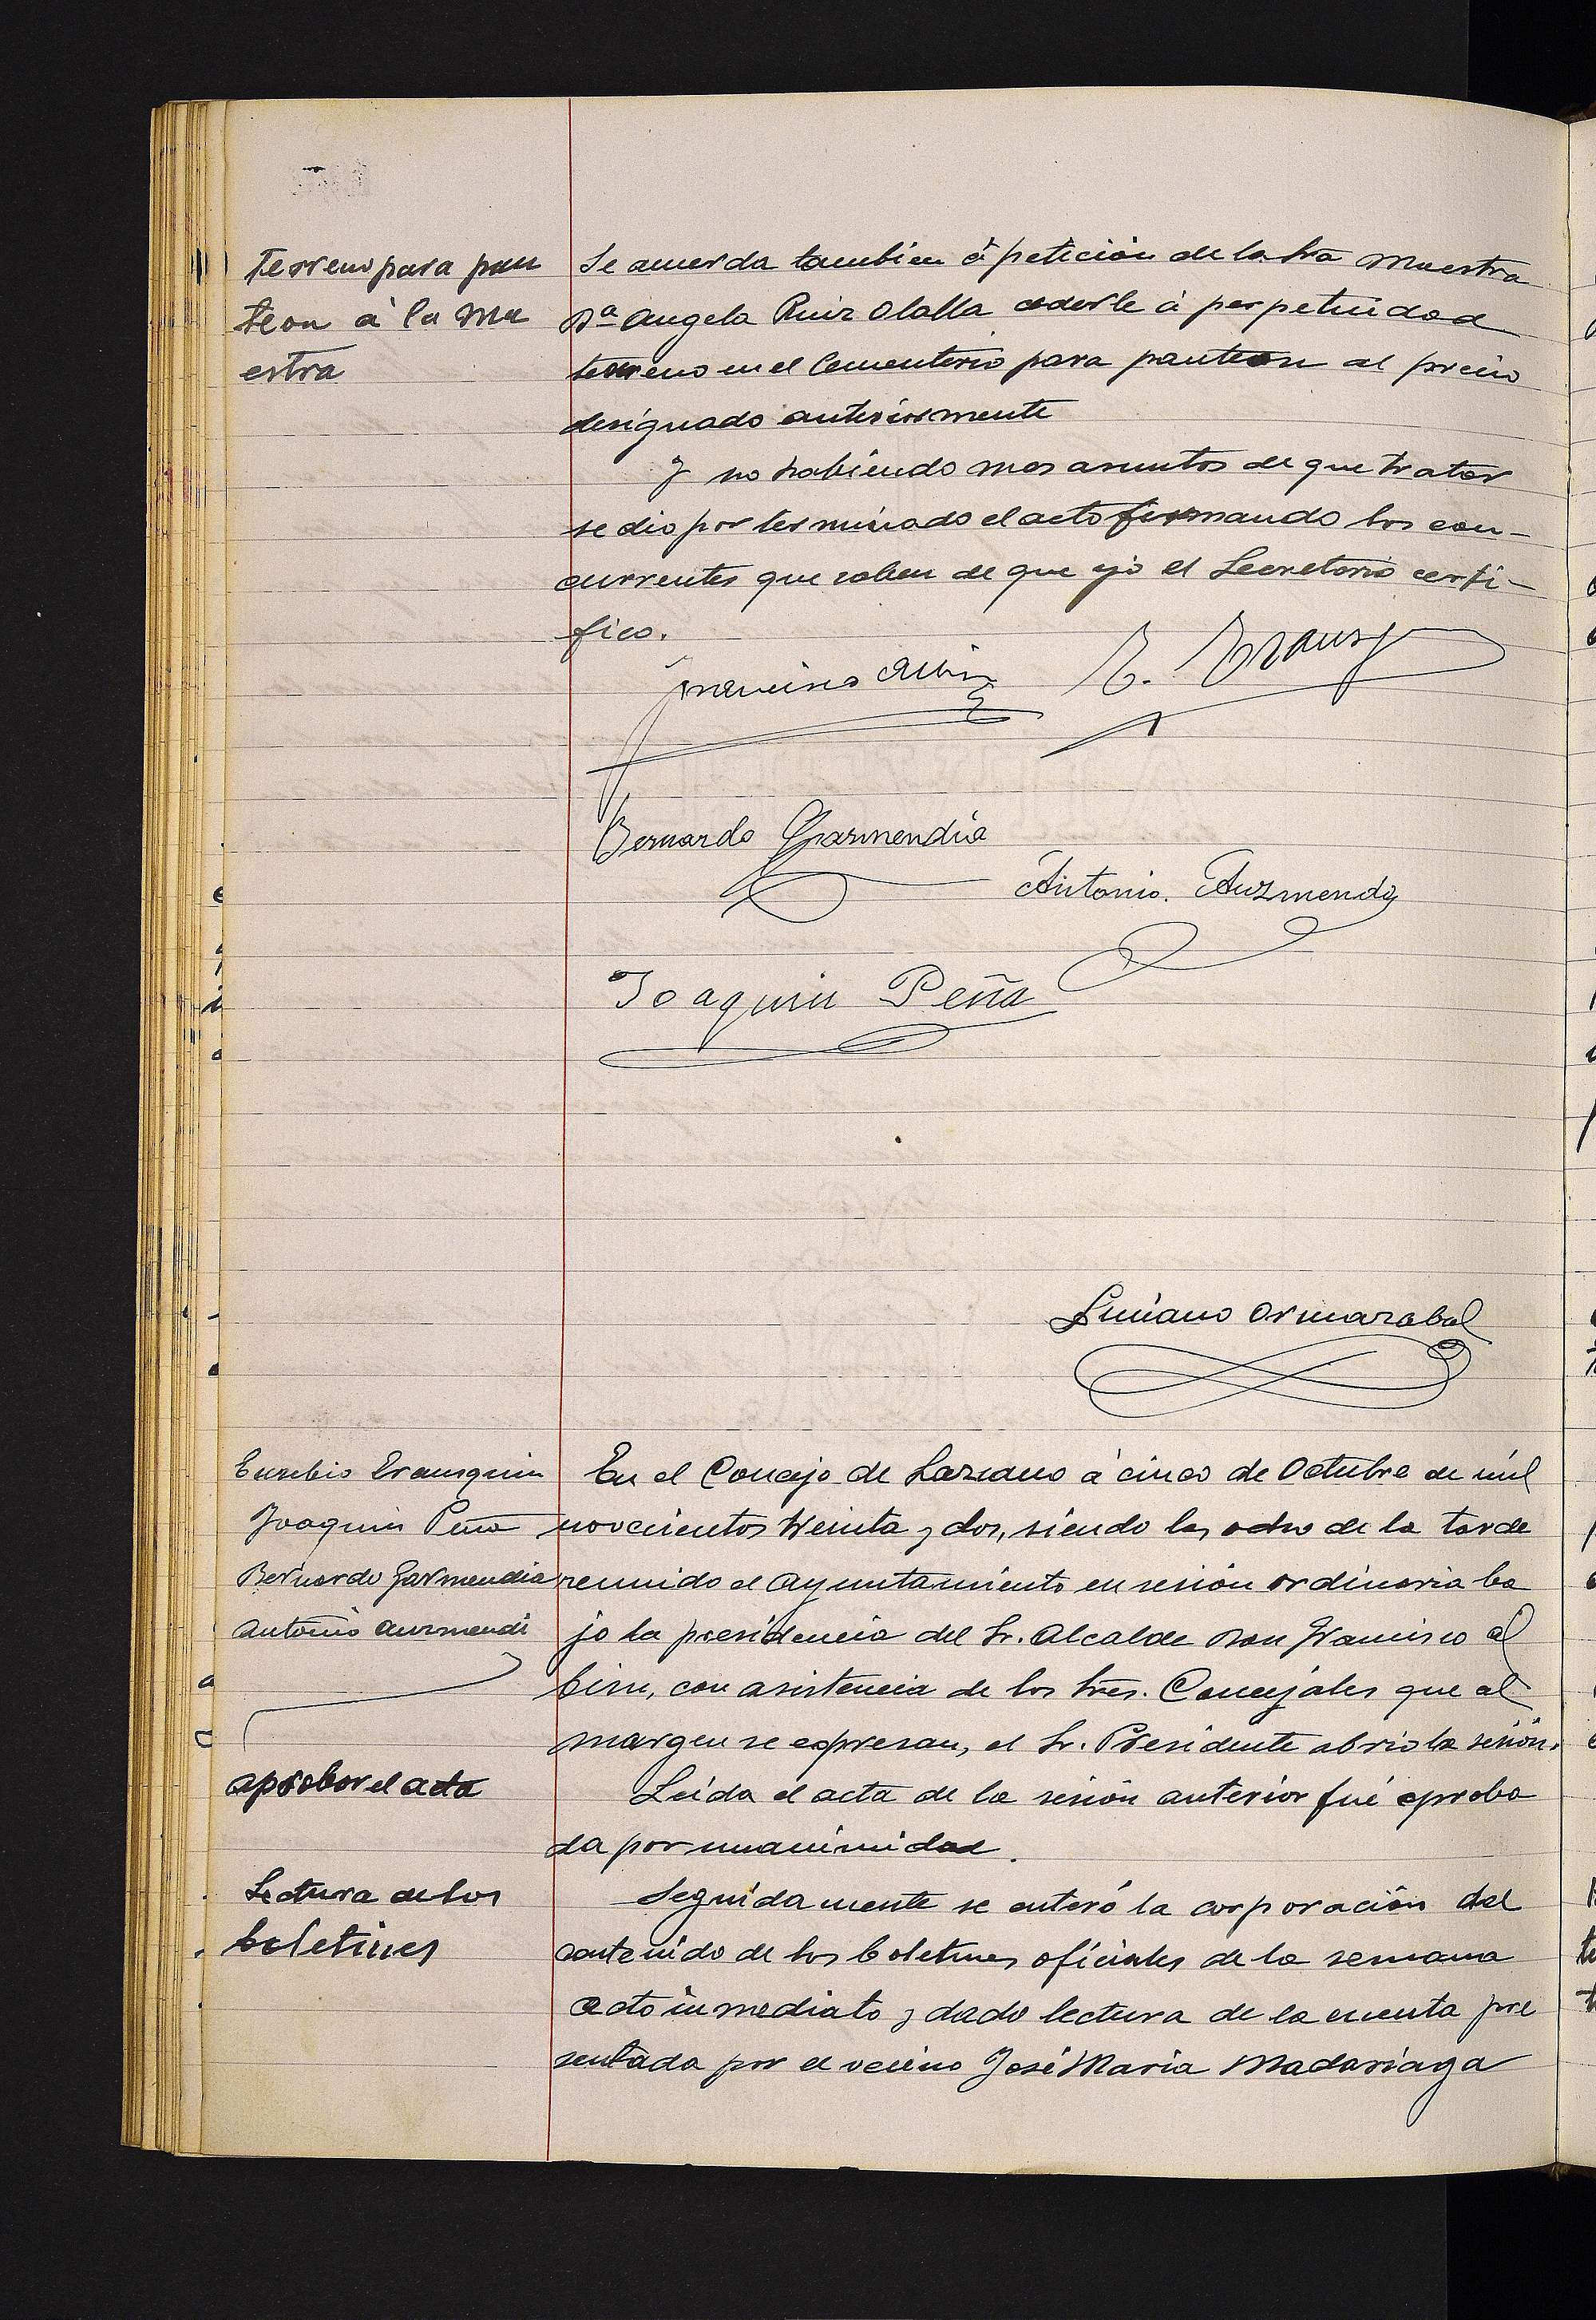 Terreno para pan
teon á la Ma
estra
Se acuerda tambien á petición de la Sra Maestra
Dª Angela Ruiz Olalla cederle á perpetuidad
terreno en el Cementerio para panteon al precio
designado anteriormente
Y no habiendo mas asuntos de que tratar
se dio por terminado el acto firmando los con-
currentes que saben de que yo el Secretario certi-
fico.
Francisco Albisu
E. Erausq
Bernardo Garmendia
Antonio. Auzmendi
Joaquin Peña
Luciano Ormazabal
Eusebio Erausquin
Joaquin Peña
Bernardo Garmendia
Antonio Auzmendi
En el Concejo de Lazcano á cinco de Octubre de mil
novecientos treinta y dos, siendo las ocho de la tarde
reunido el Ayuntamiento en sesión ordinaria ba
jo la presidencia del Sr. Alcalde Don Francisco Al
bisu, con asistencia de los Sres. Concejales que al
margen se expresan, el Sr. Presidente abrio la sesión.
aprobar el acta
Leida el acta de la sesión anterior fué aproba
da por unanimidad.
Lectura de los
boletines
Seguidamente se enteró la corporación del
contenido de los boletines oficiales de la semana
acto inmediato y dado lectura de la cuenta pre
sentada por el vecino José Maria Madariaga